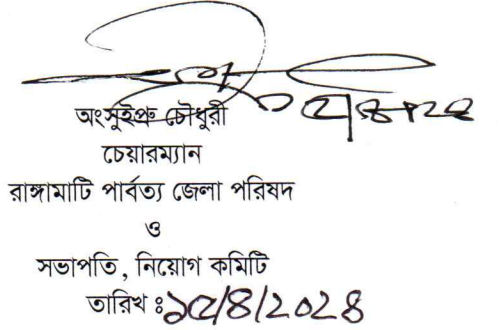 অংসুইপ্রু চৌধুরী
চেয়ারম্যান
রাঙ্গামাটি পার্বত্য জেলা পরিষদ
ও
সভাপতি, নিয়োগ কমিটি
তারিখ ঃ ১৫/৪/২০২৪